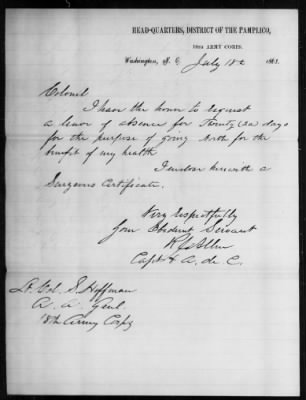 HEAD-QUARTERS, DISTRICT OF THE PAMPLICO,
18TH ARMY CORPS.
Washington, N. C. July 18th 1863.
Colonel
I have the honor to request
a leave of absence for Twenty (20) days
for the purpose of going North for the
benefit of my health
I enclose herewith a
Surgeons Certificate.
Very Respectfully
Your Obedient Servant
Capt & A. de C.
Lt. Col. S. Hoffman
A. A. Genl.
18th Army Corps